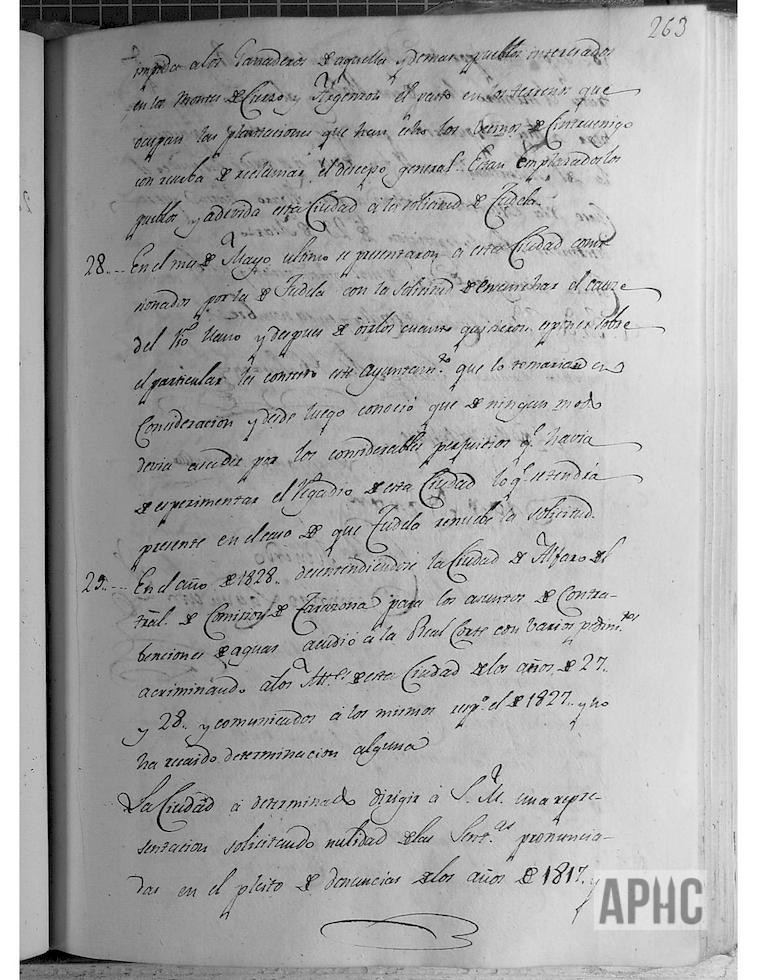 263
impida a los Ganaderos de aquella y demas pueblos interesados
en los Montes de Cierzo y Argenzon el pasto en los terrenos que
ocupan las plantaciones que han echo los vecinos de Cintruenigo
con reserba de reclamar el descepo general. Estan emplazados los
pueblos y aderida esta Ciudad a la solicitud de Tudela.
28.. En el mes de Mayo ultimo se presentaron a esta Ciudad comi-
sionados por la de Tudela con la solicitud de ensanchar el cauze
del Rio Nuevo y despues de oirlos cuanto quisieron esponer sobre
el particular les contesto este Ayuntam.to que lo tomaria en
Consideracion y desde luego conocio que de ningun modo
devia acceder por los considerables perjuicios q.e havia
de esperimentar el Regadio de esta Ciudad lo q.e se tendria
presente en el caso de que Tudela renuebe la solicitud.
29.. En el año de 1828. desentendiendose la Ciudad de Alfaro del
trãl. de Comision de Tarazona para los asuntos de Contra-
benciones de aguas acudió a la Real Corte con varios pedim.tos
acriminando a los Alc.es de esta Ciudad de los años de 27..
y 28.. y comunicados a los mismos el de 1827.. y no
ha recaido determinacion alguna
La Ciudad a determinado dirigir a S. M. una repre-
sentacion solicitando nulidad de las Sent.as pronuncia-
das en el pleito de denuncias de los años de 1817. y
APHC